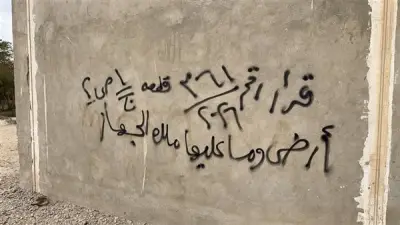 قرار رقم ٣٦١/٢٠٢٦ قطعه
أرض وما عليها ملك الجهاز